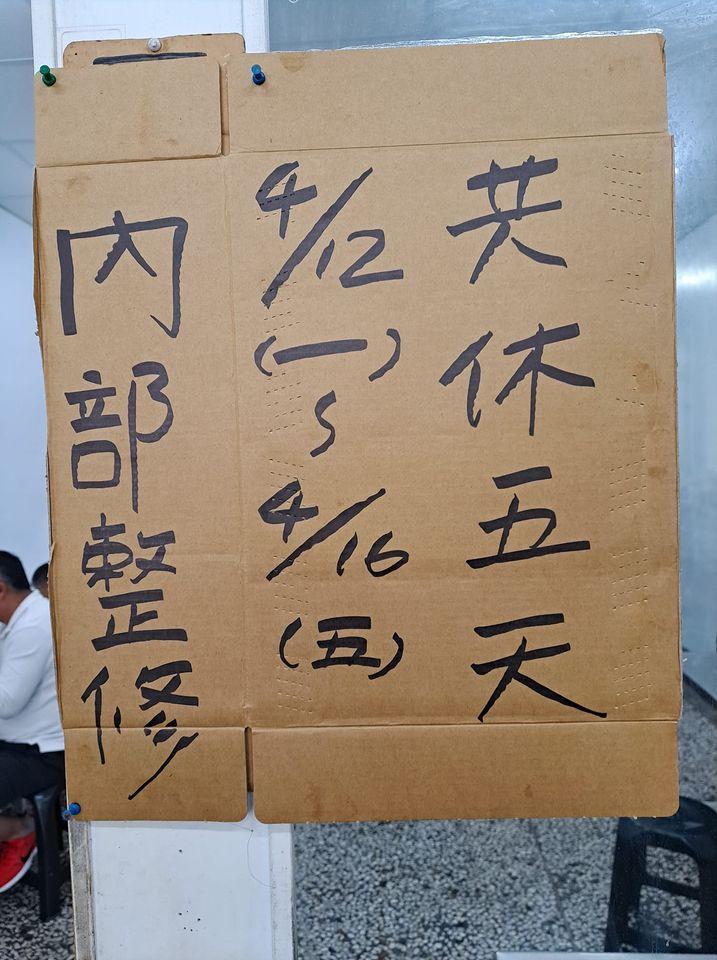 內部整修
4/12(一)~4/16(五)
共休五天